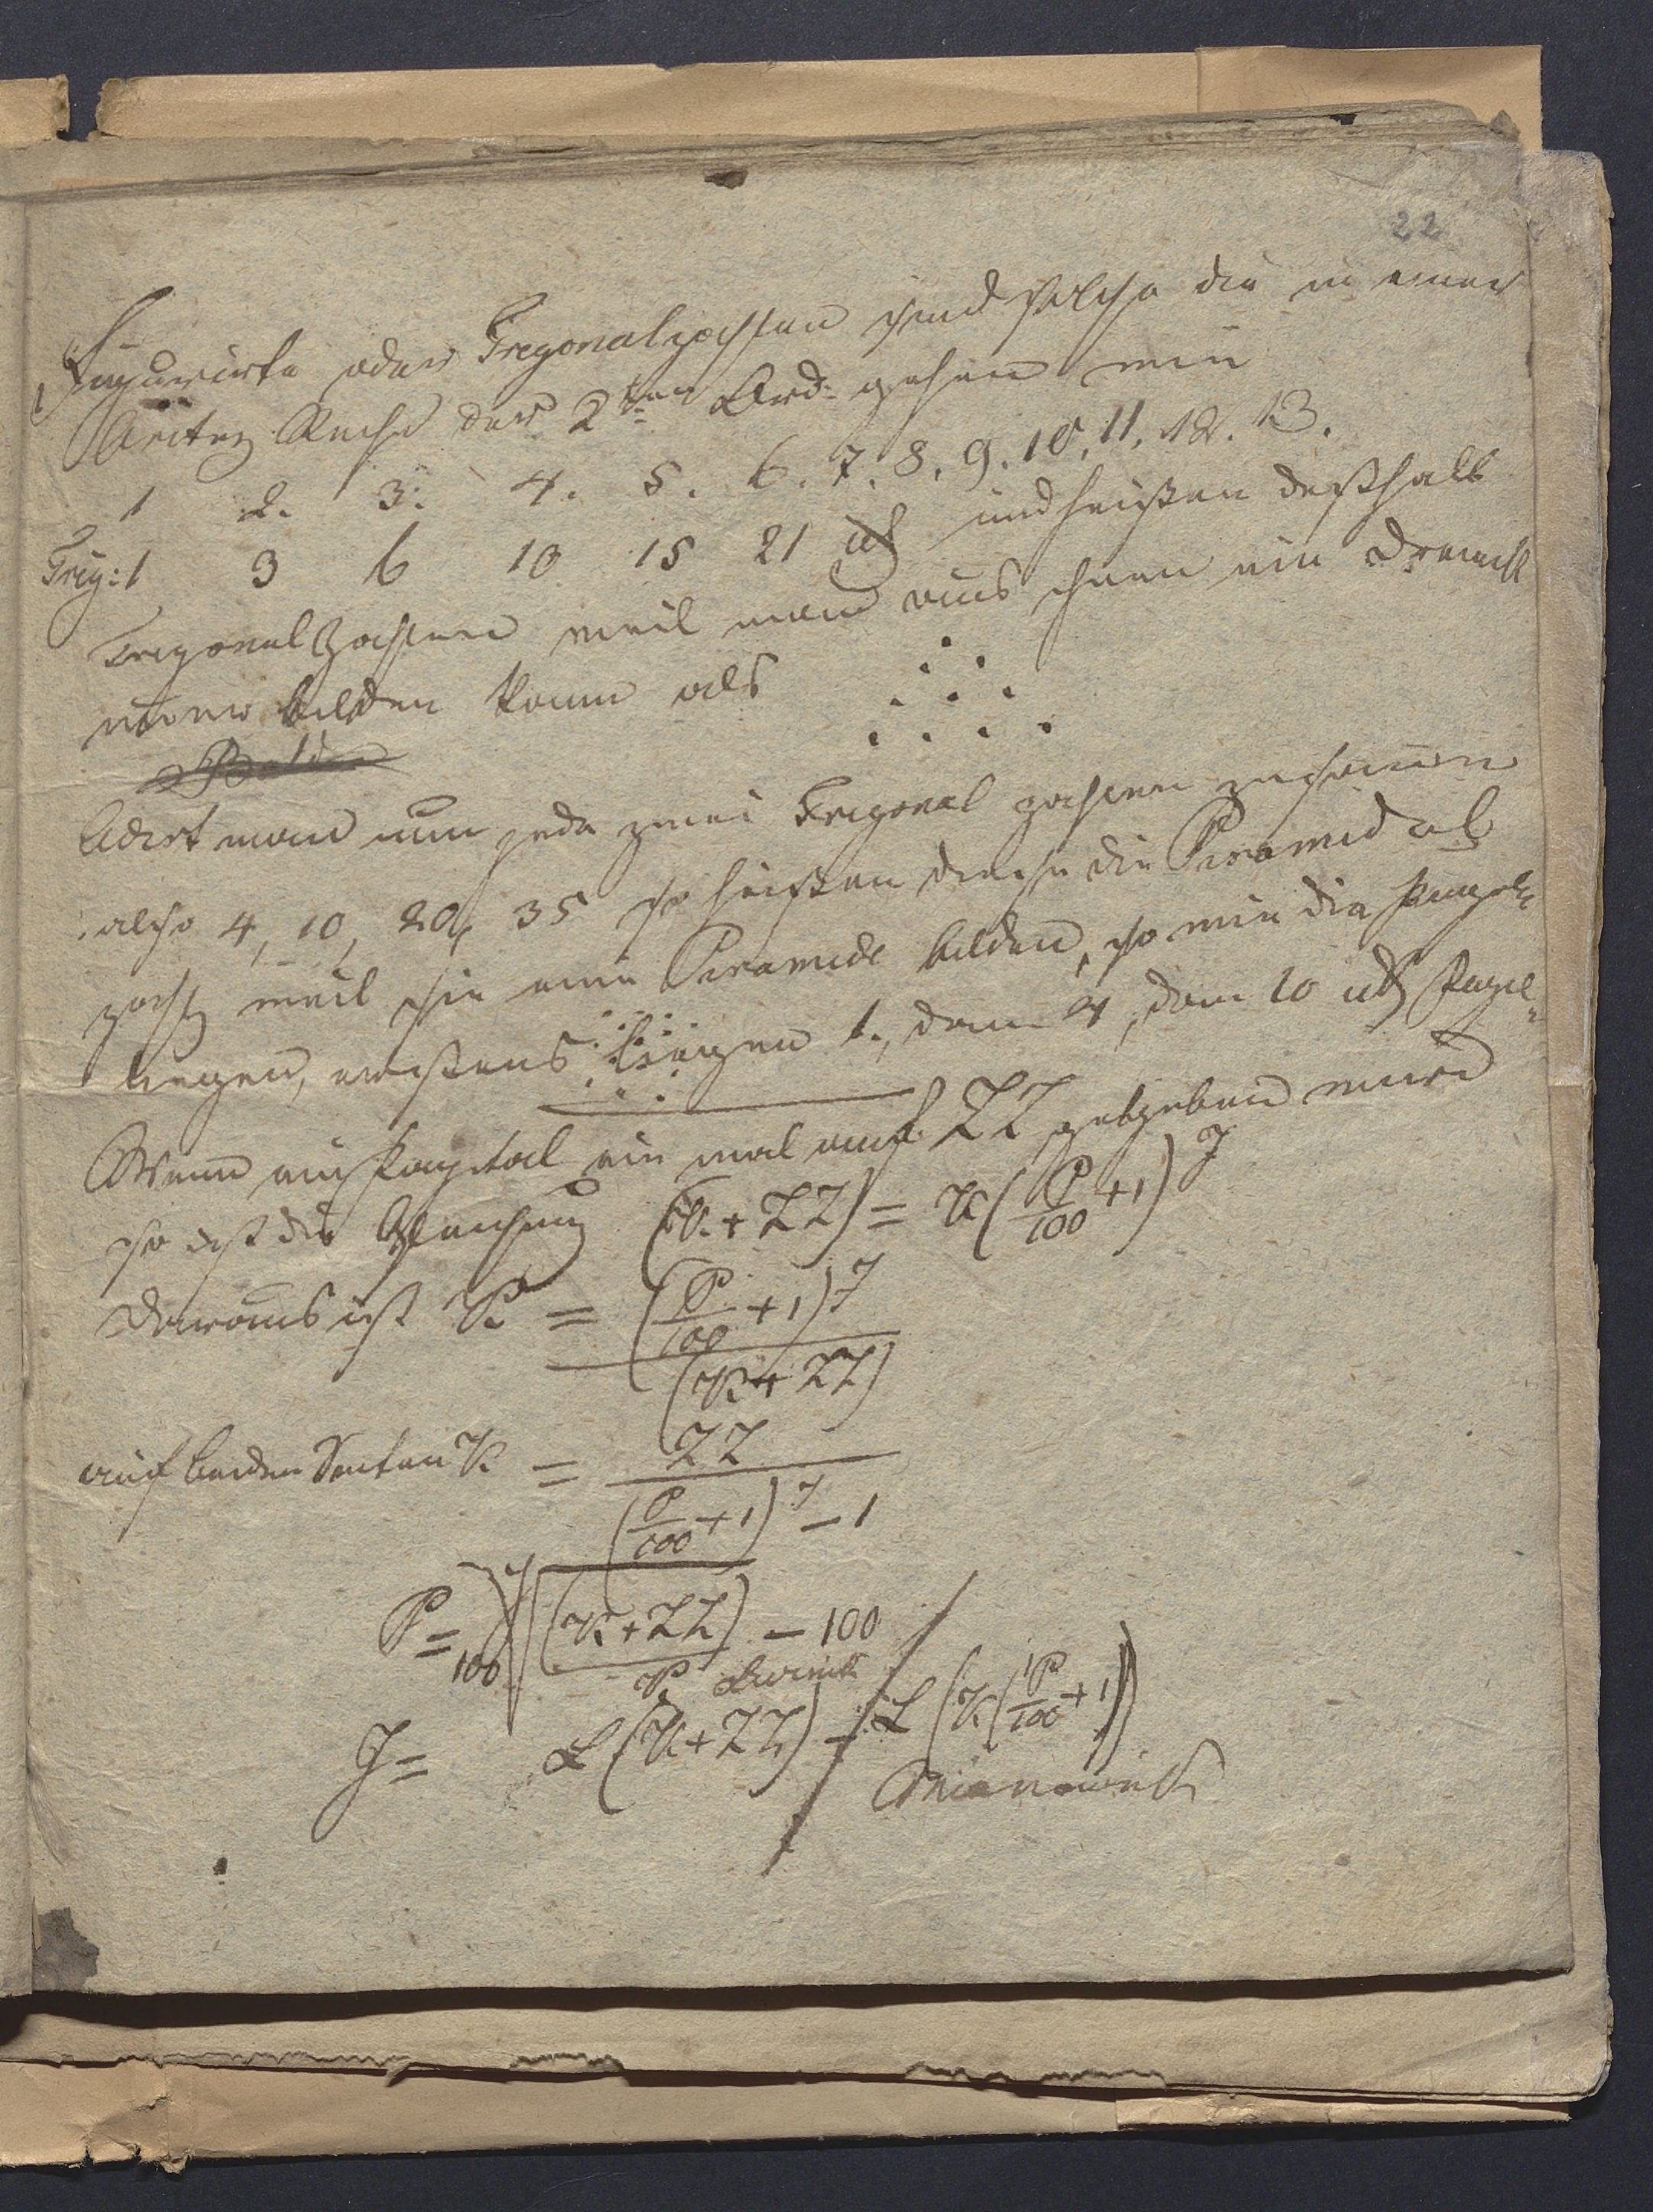 22
Figurirte oder Trigonalzahlen sind solche die in einer
Aritm Reihe der 2ten Ord: gehen wie
1 2. 3. 4. 5. 6. 7. 8. 9. 10. 11. 12. 13.
Trig: 1 3 6 10 15 21 und heißen deßhalb
Trigonal Zahlen weil man aus ihnen ein Dreieck
bilden kann als
Adirt man nun jede zwei Trigonal zahlen zusamen
also 4, 10, 20, 35 so heißen diese die Piramidal
zahl weil sie eine Piramide bilden, so wie die Kugeln
liegen, erstens liegen 1., dann 4, dann 10 Kugel¬
Wenn ein Kapital ein mal auf ZZ gegeben wird
so ist die Gleichung (K + ZZ) = K (P/100 + 1)^J
daraus ist K = (P/100 + 1)^J / (K + ZZ)
auf beiden Seiten K = ZZ / (P/100 + 1)^J − 1
P = 100 J√((K + ZZ) / K) − 100
J = L (K + ZZ) − L (K (P/100 + 1))